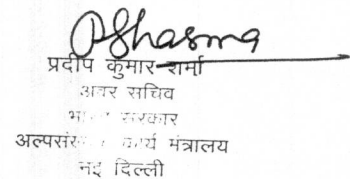 PSharma
प्रदीप कुमार शर्मा
अवर सचिव
सरकार
कार्य मंत्रालय
नई दिल्ली